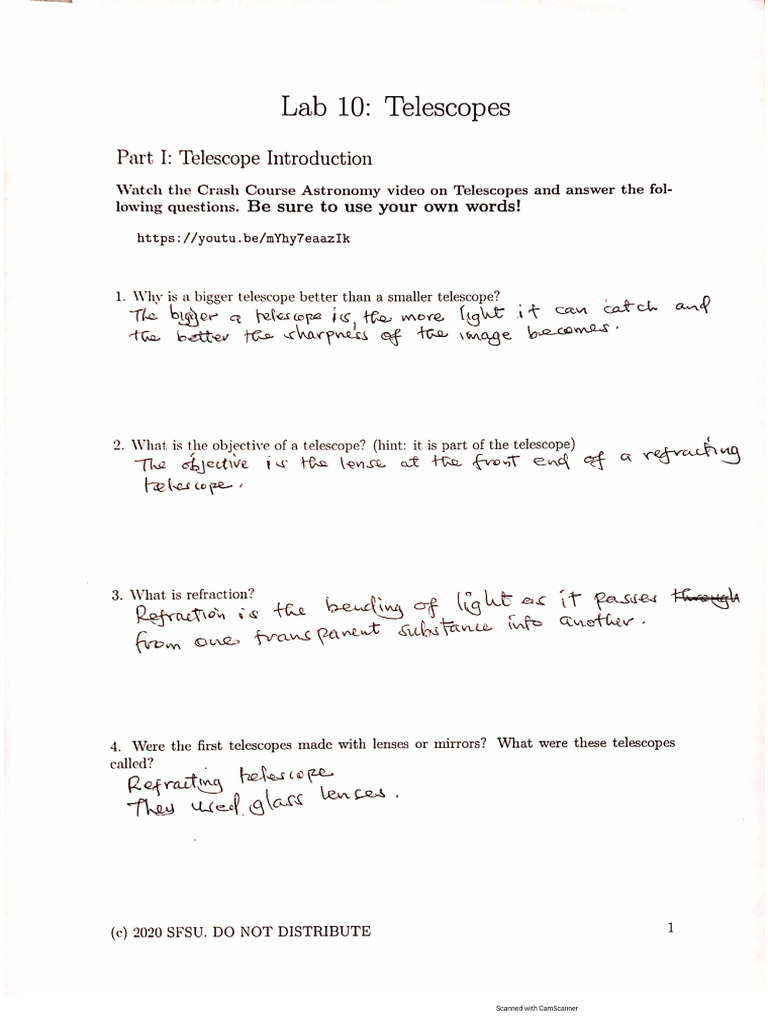 Lab 10: Telescopes
Part I: Telescope Introduction
Watch the Crash Course Astronomy video on Telescopes and answer the fol-
lowing questions. Be sure to use your own words!
https://youtu.be/mYhy7eaazIk
1. Why is a bigger telescope better than a smaller telescope?
The bigger a telescope is, the more light it can catch and
the better the sharpness of the image becomes.
2. What is the objective of a telescope? (hint: it is part of the telescope)
The objective is the lense at the front end of a refracting
telescope.
3. What is refraction?
Refraction is the bending of light as it passes through
from one transparent substance into another.
4. Were the first telescopes made with lenses or mirrors? What were these telescopes
called?
Refracting telescope
They used glass lenses.
(c) 2020 SFSU. DO NOT DISTRIBUTE
1
Scanned with CamScanner